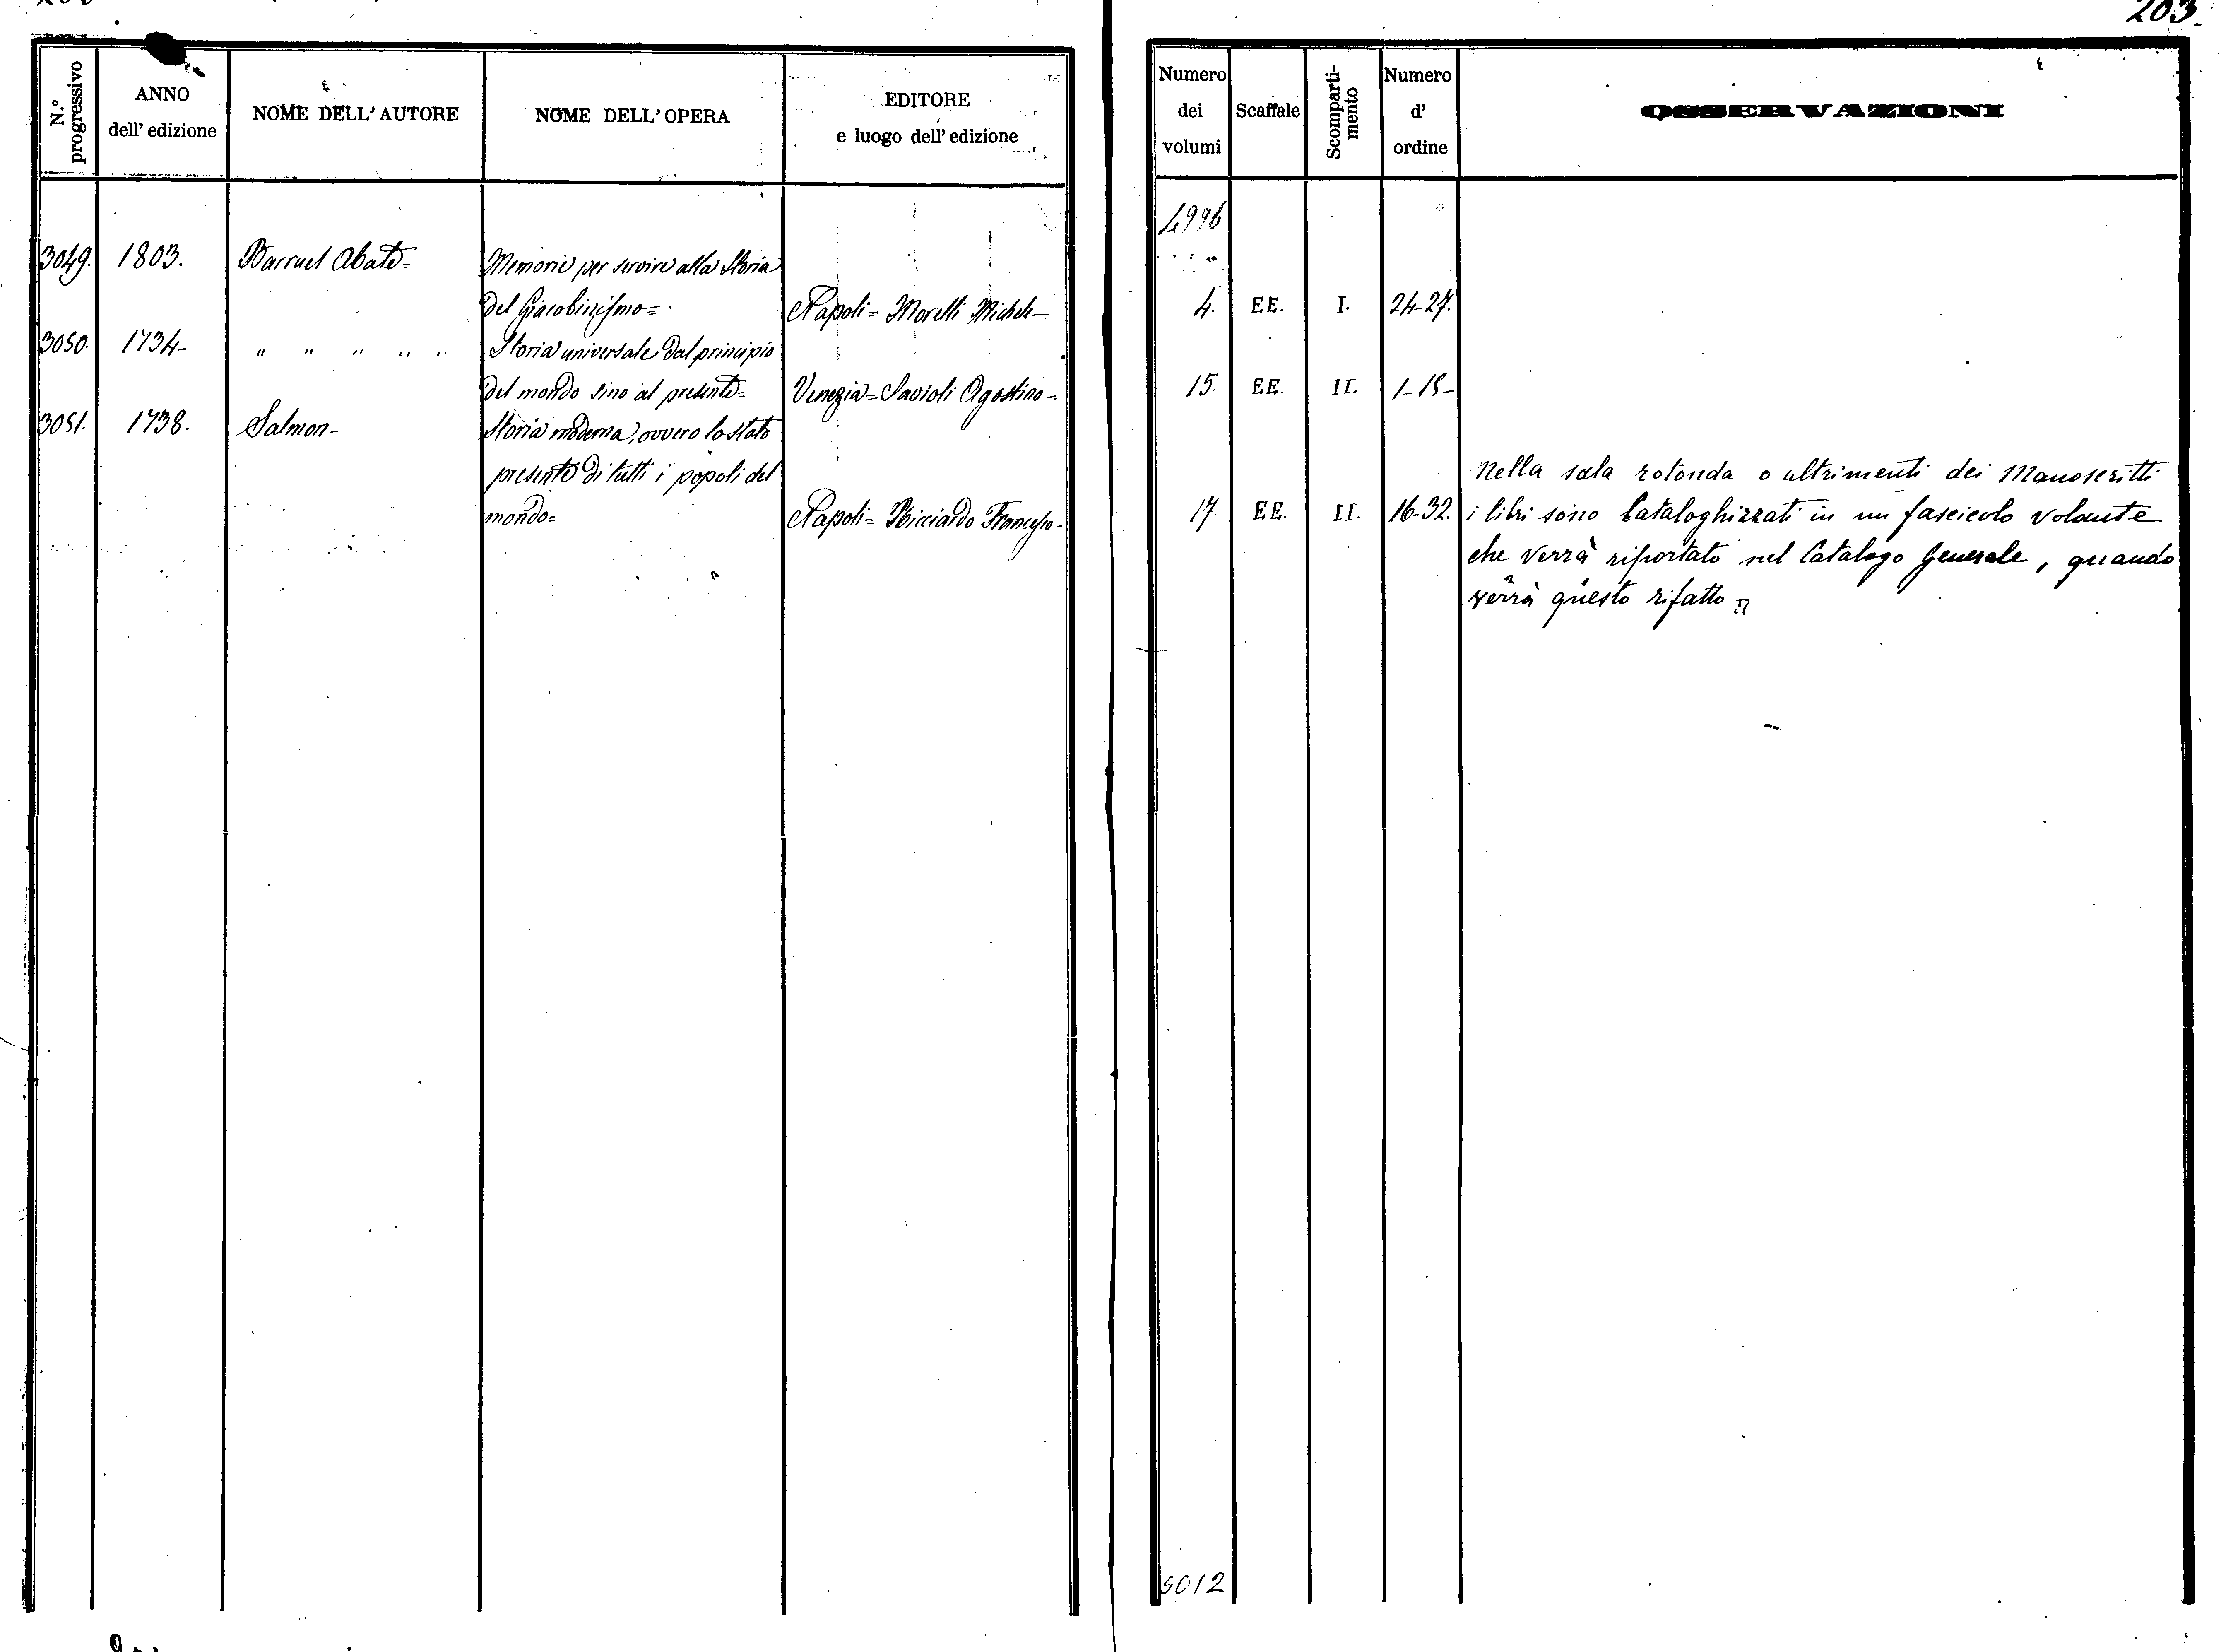 203.
N.° progressivo
ANNO
dell' edizione
NOME DELL' AUTORE
NOME DELL' OPERA
EDITORE
e luogo dell' edizione
Numero
dei
volumi
Scaffale
Scomparti-
mento
Numero
d'
ordine
OSSERVAZIONI
4996
3049. 1803. Barruel Abate= Memorie per servire alla Storia
del Giacobinismo= Napoli= Morelli Michele- 4. EE. I. 24-27.
3050. 1734- " " " " " Storia universale dal principio
del mondo sino al presente= Venezia= Savioli Agostino- 15. EE. II. 1-15-
3051. 1738. Salmon- Storia moderna, ovvero lo stato
presente di tutti i popoli del
mondo= Napoli= Ricciardo Francesco- 17. EE. II. 16-32.
Nella sala rotonda o altrimenti dei Manoscritti
i libri sono Cataloghizzati in un fascicolo volante
che verrà riportato nel Catalogo Generale, quando
verrà questo rifatto
5012